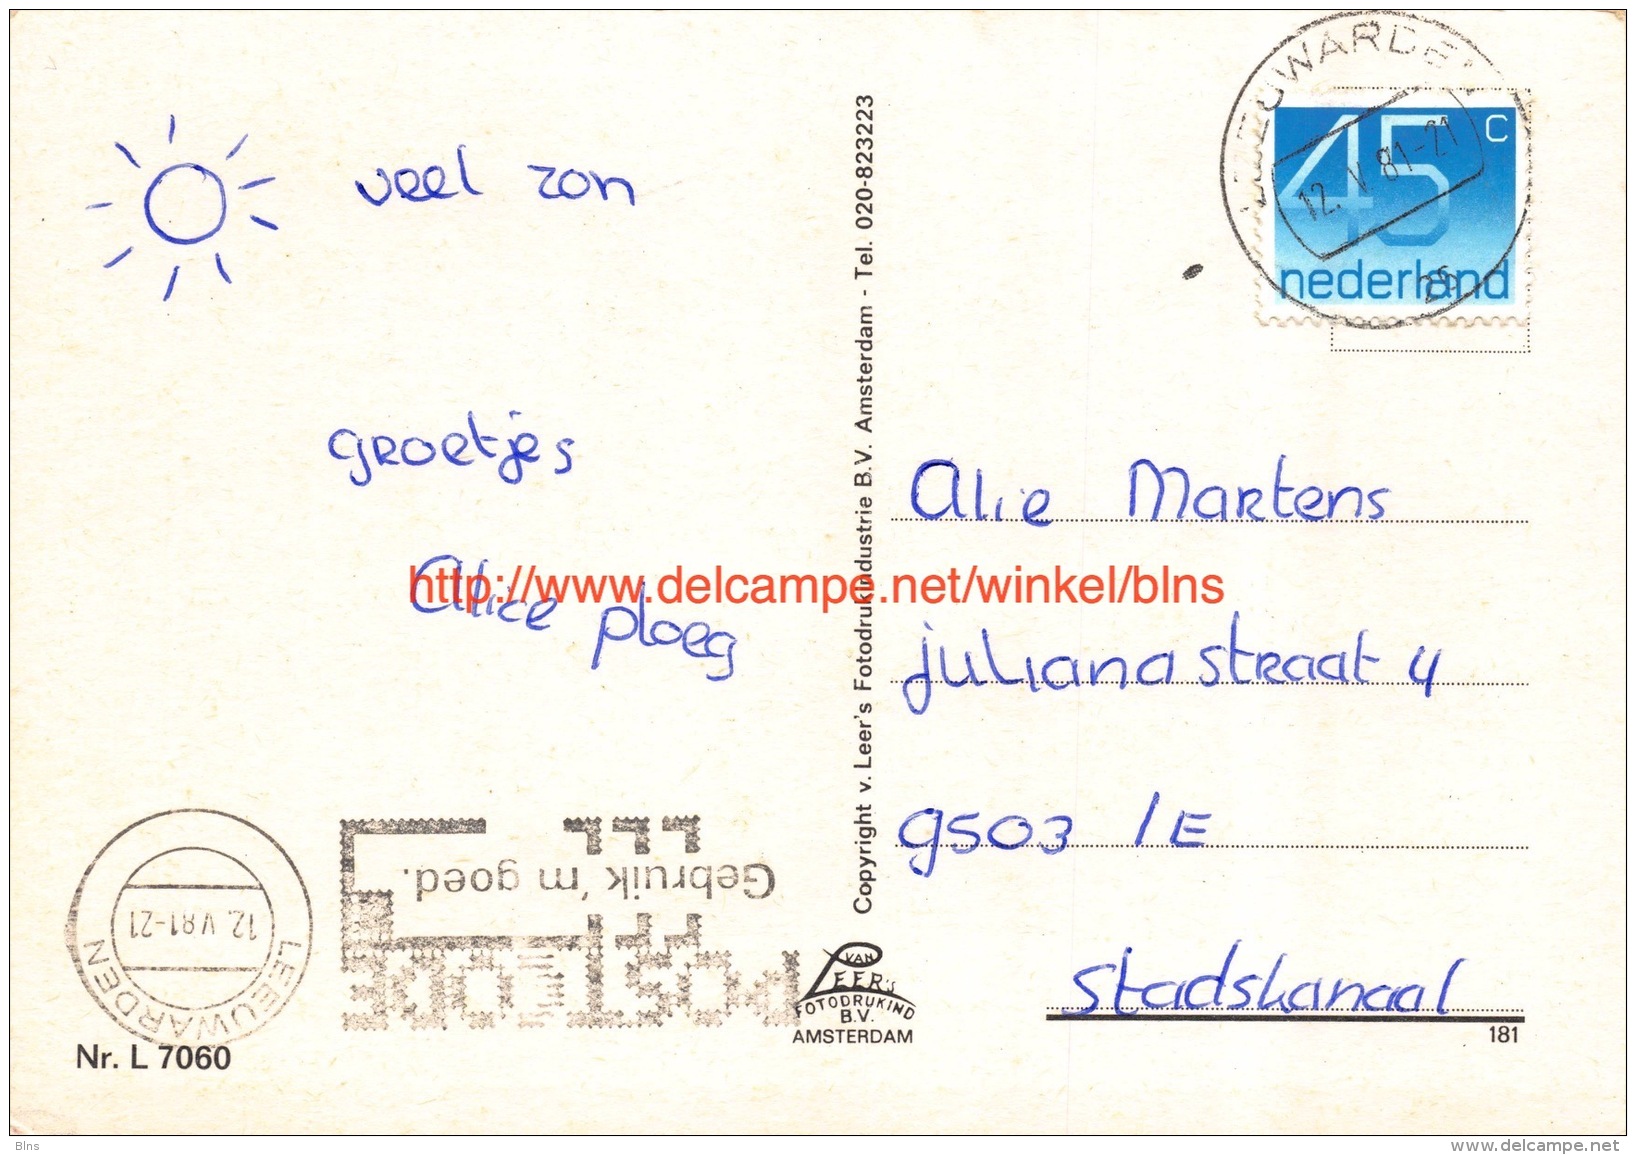 veel zon
groetjes
Alice ploeg
http://www.delcampe.net/winkel/blns
Copyright v. Leer's Fotodrukindustrie B.V. Amsterdam - Tel. 020-823223
LEEUWARDEN
12. V. 81-21
26
45 c
nederland
Alie Martens
julianastraat 4
9503 1E
Stadskanaal
181
LEEUWARDEN
12. V 81-21
POSTCODE
Gebruik 'm goed.
VAN
LEER's
FOTODRUKIND
B.V.
AMSTERDAM
Nr. L 7060
Blns
www.delcampe.net